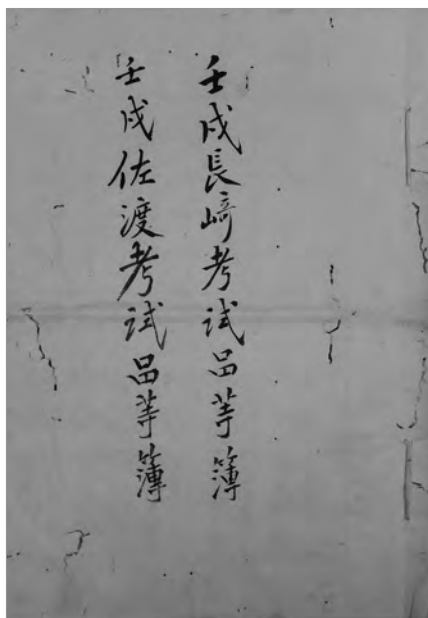 壬戌長崎考試品等簿
壬戌佐渡考試品等簿